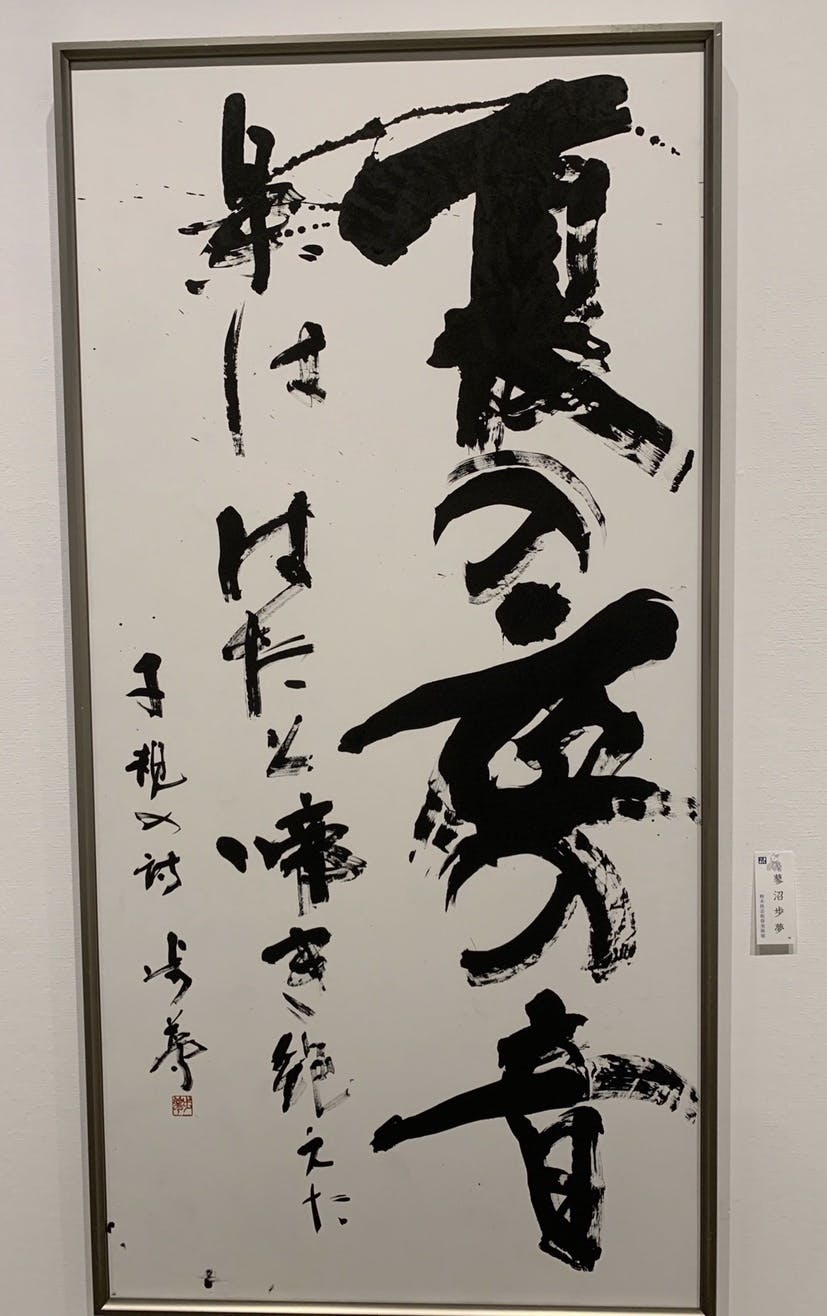 夏の夜の音
は はたと啼き絶えた
子規の詩 歩夢
蓼沼歩夢